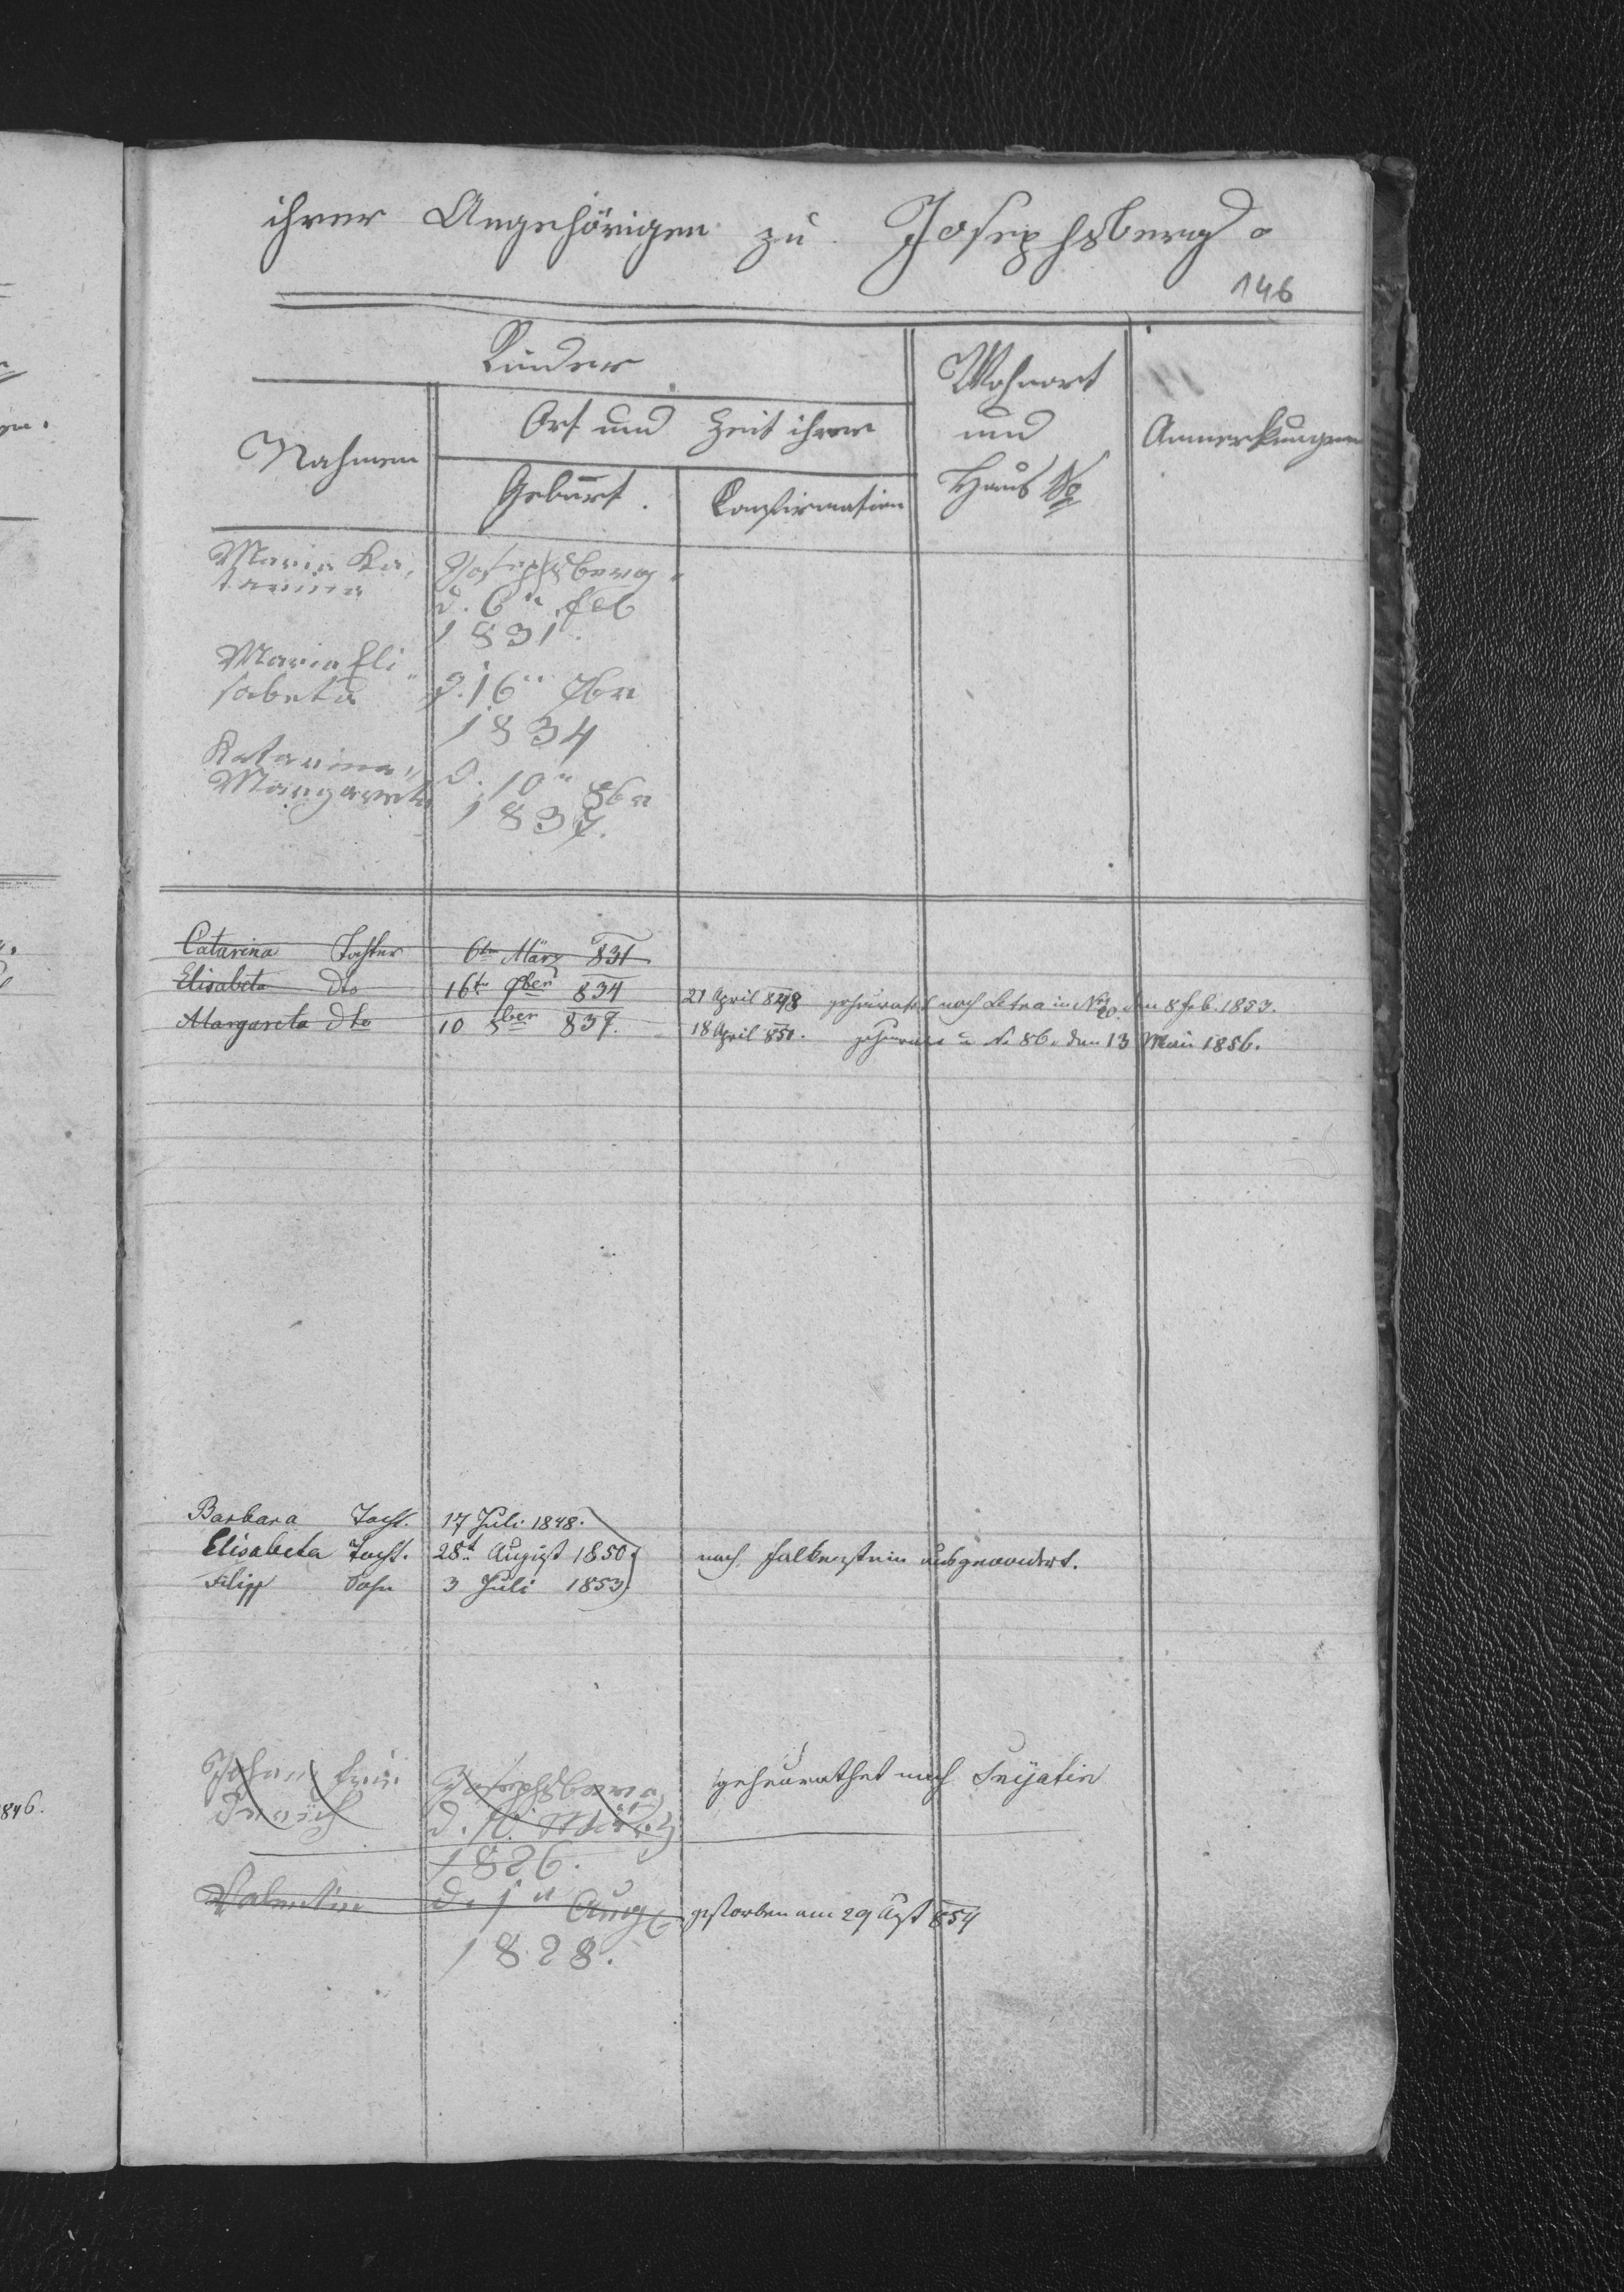 ihrer Angehörigen zu Josephsberg
146
Kinder
Nahmen
Ort und Zeit ihrer
Geburt.
Confirmation
Wohnort
und
Haus No
Anmerkungen
Maria Ka,
tarina
Josephsberg
d. 6tn Feb
1831.
Maria Eli
sabeta
d. 16tn 9br
1834
Katarina
Margareta
d. 10tn 8br
1837.
Catarina Tochter 6tn März 831
Elisabeta dto 16tn 9ber 834 21 April 848 geheurathet nach in No 20. den 8 Feb. 1853.
Margareta dto 10 8ber 837. 18 April 851. geheurath N. 86. den 13 Mai 1856.
Barbara Toch. 17 Juli 1848.
Elisabeta Toch. 28t August 1850 nach Falkenstein ausgewandert.
Filipp Sohn 3 Juli 1853
1846.
Johann
Josephsberg
d. März
1826.
geheurathet nach
Valentin d. 1tn Aug gestorben am 29 Agst 854
1828.